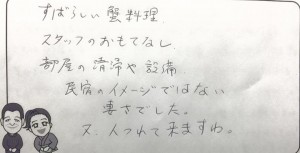 すばらしい蟹料理
スタッフのおもてなし
部屋の清掃や設備
民宿のイメージではない
凄さでした。
又、人つれて来ますね。